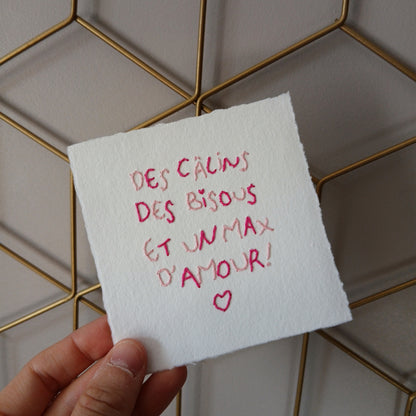 DES CÂLINS
DES BISOUS
ET UN MAX
D'AMOUR!